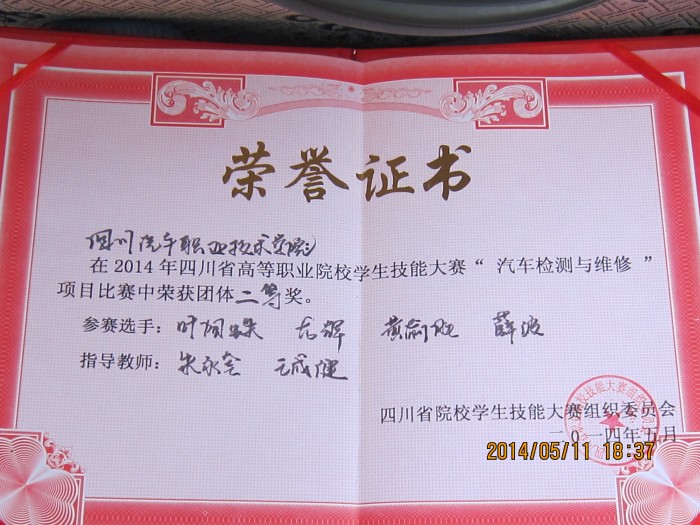 荣誉证书
四川汽车职业技术学院
在2014年四川省高等职业院校学生技能大赛“ 汽车检测与维修 ”
项目比赛中荣获团体二等奖。
参赛选手: 黄 薛波
指导教师: 朱永
四川省院校学生技能大赛组织委员会
二〇一四年五月
2014/05/11 18:37